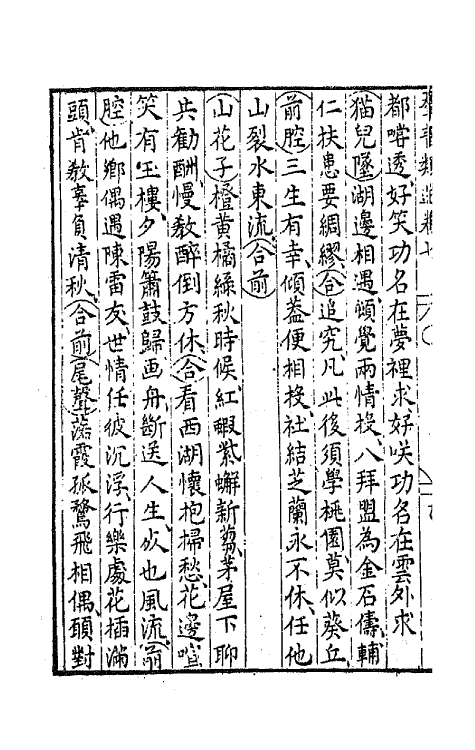 都嘗透好笑功名在夢裡求好笑功名在雲外求
猫兒墜湖邊相遇頓覺兩情投八拜盟為金石儔輔
仁扶患要綢繆合追究凡此後須學桃園莫似葵丘
前腔三生有幸傾蓋便相投社結芝蘭永不休任他
山裂水東流合前
山花子橙黄橘綠秋時候紅蝦紫蠏新蒭茅屋下聊
共勸酬慢教醉倒方休合看西湖懷抱掃愁花邊喧
笑有玉樓夕陽簫鼓歸画舟斷送人生必也風流前
腔他鄉偶遇陳雷友世情任彼沉浮行樂處花插滿
頭肯教辜負清秋合前尾聲落霞孤鶩飛相偶頭對